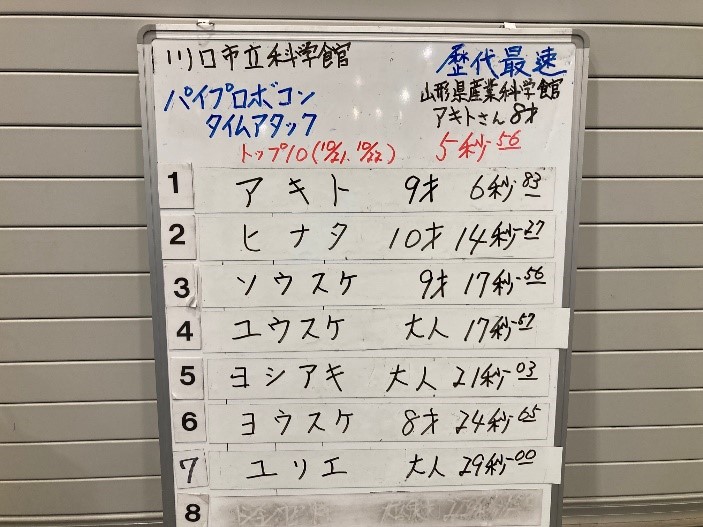 川口市立科学館
歴代最速
パイプロボコン
タイムアタック
山形県産業科学館
アキトさん 8才
トップ10(10/21.10/22)
5秒56
1 アキト 9才 6秒83
2 ヒナタ 10才 14秒27
3 ソウスケ 9才 17秒56
4 ユウスケ 大人 17秒57
5 ヨシアキ 大人 21秒03
6 ヨウスケ 8才 24秒65
7 ユリエ 大人 29秒00
8